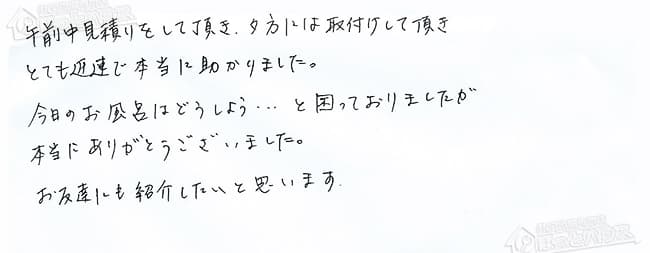 午前中見積りをして頂き、夕方には取付けして頂き
とても迅速で本当に助かりました。
今日のお風呂はどうしよう…と困っておりましたが
本当にありがとうございました。
お友達にも紹介したいと思います。